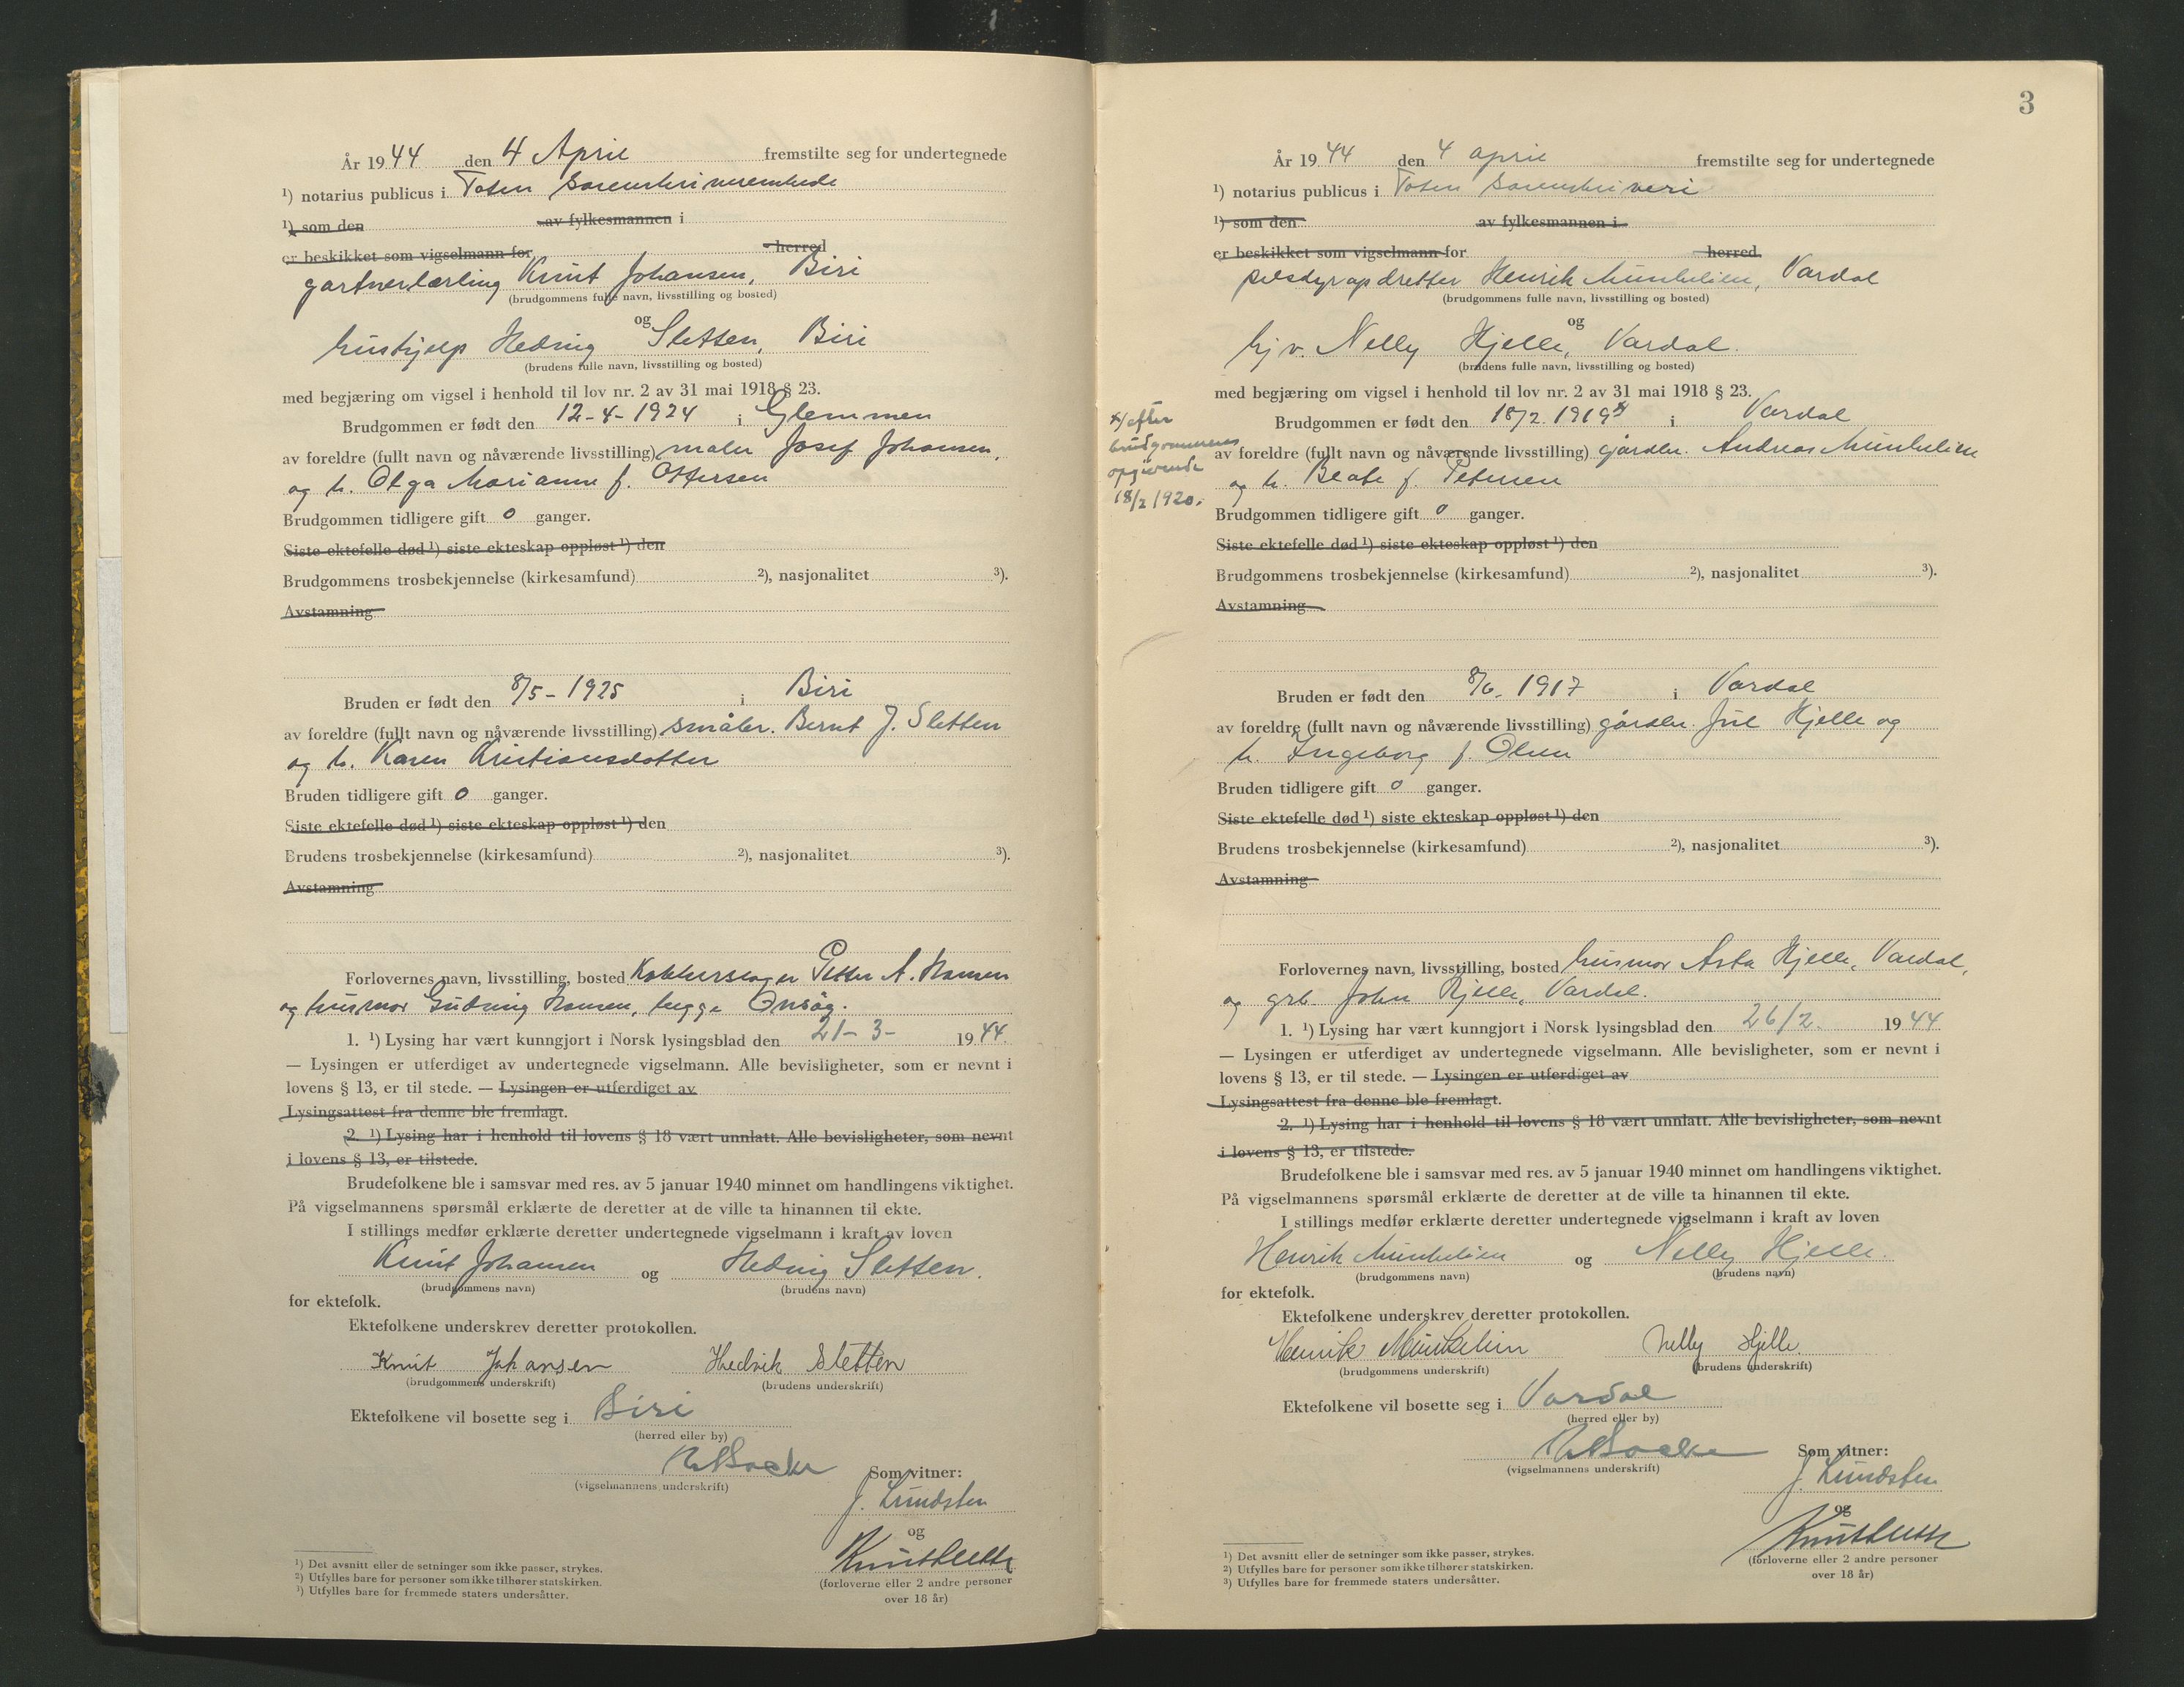 År 1944 den 4 April fremstilte seg for undertegnede
¹) notarius publicus i Toten sorenskriverembede
¹) som den av fylkesmannen i
er beskikket som vigselmann for herred
gartnerlærling Knut Johansen, Biri
(brudgommens fulle navn, livsstilling og bosted)
og
hushjelp Hedvig Sletten, Biri
(brudens fulle navn, livsstilling og bosted)
med begjæring om vigsel i henhold til lov nr. 2 av 31 mai 1918 § 23.
Brudgommen er født den 12-4-1924 i Glemmen
av foreldre (fullt navn og nåværende livsstilling) maler Josef Johansen,
og h. Olga Marianne f. Ottersen
Brudgommen tidligere gift 0 ganger.
Siste ektefelle død ¹) siste ekteskap oppløst ¹) den
Brudgommens trosbekjennelse (kirkesamfund) ²), nasjonalitet ³).
Avstamning
Bruden er født den 8/5-1925 i Biri
av foreldre (fullt navn og nåværende livsstilling) småbr. Bernt J. Sletten
og h. Karen Kristiansdotter
Bruden tidligere gift 0 ganger.
Siste ektefelle død ¹) siste ekteskap oppløst ¹) den
Brudens trosbekjennelse (kirkesamfund) ²), nasjonalitet ³).
Avstamning
Forlovernes navn, livsstilling, bosted Kobberslager Petter A. Hansen
og husmor Gudvig Hansen, begge Onsøy.
1. ¹) Lysing har vært kunngjort i Norsk lysingsblad den 21-3- 1944.
— Lysingen er utferdiget av undertegnede vigselmann. Alle bevisligheter, som er nevnt i
lovens § 13, er til stede. — Lysingen er utferdiget av
Lysingsattest fra denne ble fremlagt.
2. ¹) Lysing har i henhold til lovens § 18 vært unnlatt. Alle bevisligheter, som nevnt
i lovens § 13, er tilstede.
Brudefolkene ble i samsvar med res. av 5 januar 1940 minnet om handlingens viktighet.
På vigselmannens spørsmål erklærte de deretter at de ville ta hinannen til ekte.
I stillings medfør erklærte deretter undertegnede vigselmann i kraft av loven
Knut Johansen og Hedvig Sletten.
(brudgommens navn) (brudens navn)
for ektefolk.
Ektefolkene underskrev deretter protokollen.
Knut Johansen Hedvik Sletten
(brudgommens underskrift) (brudens underskrift)
Ektefolkene vil bosette seg i Biri
(herred eller by)
Som vitner:
(vigselmannens underskrift)
J. Lundsten
og
(forloverne eller 2 andre personer
over 18 år)
¹) Det avsnitt eller de setninger som ikke passer, strykes.
²) Utfylles bare for personer som ikke tilhører statskirken.
³) Utfylles bare for fremmede staters undersåtter.
3
År 1944 den 4 april fremstilte seg for undertegnede
¹) notarius publicus i Toten sorenskriveri
¹) som den av fylkesmannen i
er beskikket som vigselmann for herred.
pelsdyropdretter Henrik Munkelien, Vardal
(brudgommens fulle navn, livsstilling og bosted)
og
hj.v. Nelly Hjelle, Vardal.
(brudens fulle navn, livsstilling og bosted)
med begjæring om vigsel i henhold til lov nr. 2 av 31 mai 1918 § 23.
Brudgommen er født den 18/2. 1919 x) i Vardal
x) efter
brudgommens
opgivende
18/2 1920.
av foreldre (fullt navn og nåværende livsstilling) gårdbr. Andreas Munkelien
og h. Beate f. Petersen
Brudgommen tidligere gift 0 ganger.
Siste ektefelle død ¹) siste ekteskap oppløst ¹) den
Brudgommens trosbekjennelse (kirkesamfund) ²), nasjonalitet ³).
Avstamning
Bruden er født den 8/6. 1917 i Vardal
av foreldre (fullt navn og nåværende livsstilling) gårdbr. Jul Hjelle og
h. Ingeborg f. Olsen
Bruden tidligere gift 0 ganger.
Siste ektefelle død ¹) siste ekteskap oppløst ¹) den
Brudens trosbekjennelse (kirkesamfund) ²), nasjonalitet ³).
Avstamning
Forlovernes navn, livsstilling, bosted husmor Asta Hjelle, Vardal,
og grb. John Hjelle, Vardal.
1. ¹) Lysing har vært kunngjort i Norsk lysingsblad den 26/2. 1944
— Lysingen er utferdiget av undertegnede vigselmann. Alle bevisligheter, som er nevnt i
lovens § 13, er til stede. — Lysingen er utferdiget av
Lysingsattest fra denne ble fremlagt.
2. ¹) Lysing har i henhold til lovens § 18 vært unnlatt. Alle bevisligheter, som nevnt
i lovens § 13, er tilstede.
Brudefolkene ble i samsvar med res. av 5 januar 1940 minnet om handlingens viktighet.
På vigselmannens spørsmål erklærte de deretter at de ville ta hinannen til ekte.
I stillings medfør erklærte deretter undertegnede vigselmann i kraft av loven
Henrik Munkelien og Nelly Hjelle.
(brudgommens navn) (brudens navn)
for ektefolk.
Ektefolkene underskrev deretter protokollen.
Henrik Munkelien Nelly Hjelle.
(brudgommens underskrift) (brudens underskrift)
Ektefolkene vil bosette seg i Vardal
(herred eller by)
Som vitner:
(vigselmannens underskrift)
J. Lundsten
og
(forloverne eller 2 andre personer
over 18 år)
¹) Det avsnitt eller de setninger som ikke passer, strykes.
²) Utfylles bare for personer som ikke tilhører statskirken.
³) Utfylles bare for fremmede staters undersåtter.